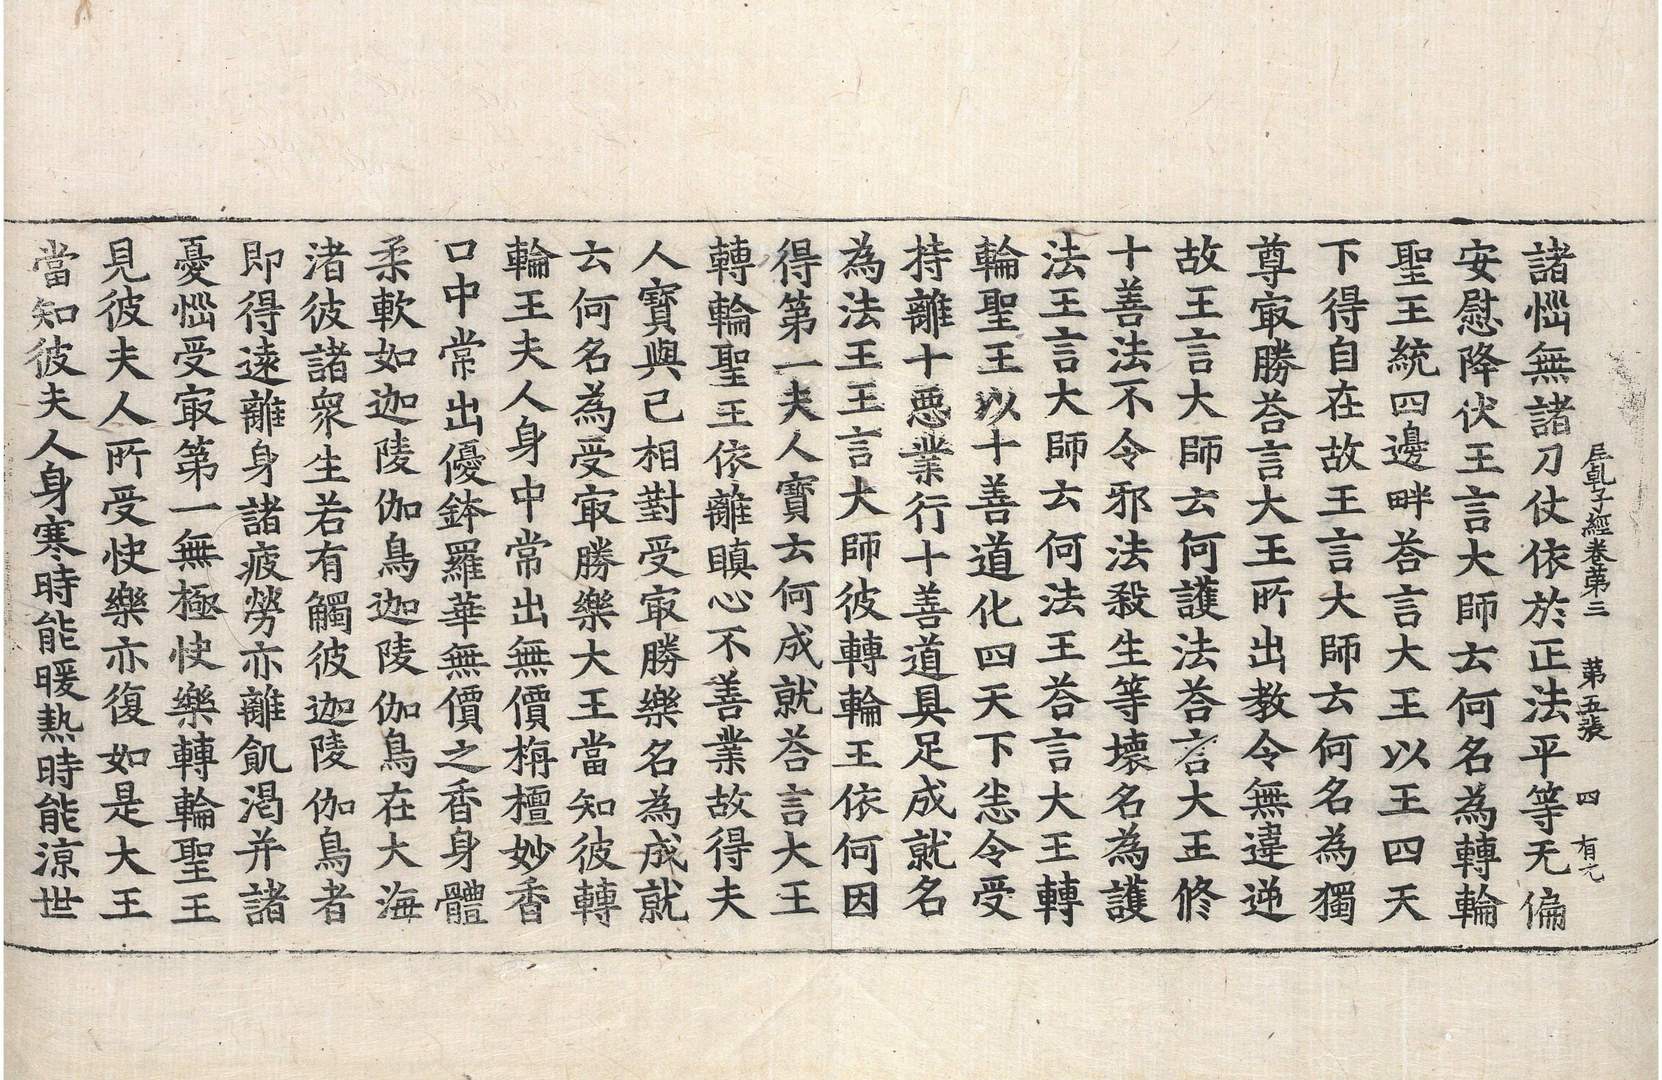 尼乹子經卷第三　第五張　四　有元
諸惱無諸刀仗依於正法平等无偏
安慰降伏王言大師云何名為轉輪
聖王統四邊畔荅言大王以王四天
下得自在故王言大師云何名為獨
尊㝡勝荅言大王所出教令無違逆
故王言大師云何護法荅言大王修
十善法不令邪法殺生等壞名為護
法王言大師云何法王荅言大王轉
輪聖王以十善道化四天下悉令受
持離十惡業行十善道具足成就名
為法王王言大師彼轉輪王依何因
得第一夫人寶云何成就荅言大王
轉輪聖王依離瞋心不善業故得夫
人寶與己相對受㝡勝樂名為成就
云何名為受㝡勝樂大王當知彼轉
輪王夫人身中常出無價栴檀妙香
口中常出優鉢羅華無價之香身體
柔軟如迦陵伽鳥迦陵伽鳥在大海
渚彼諸衆生若有觸彼迦陵伽鳥者
即得遠離身諸疲勞亦離飢渴并諸
憂惱受㝡第一無極快樂轉輪聖王
見彼夫人所受快樂亦復如是大王
當知彼夫人身寒時能暖熱時能涼世